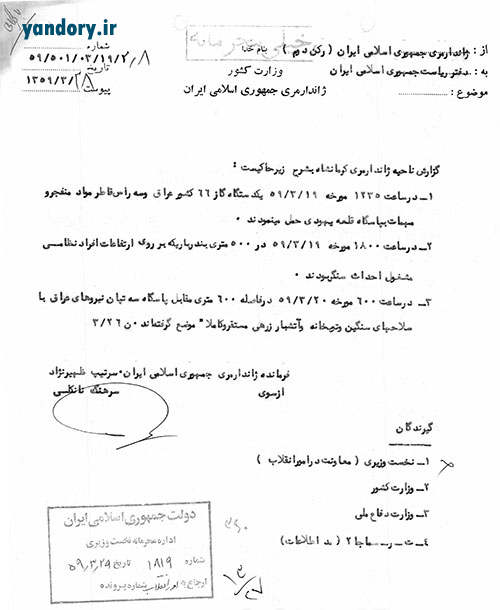 yandory.ir
خیلی محرمانه
بنام خدا
از : ژاندارمری جمهوری اسلامی ایران ( رکن دوم )
به : دفتر ریاست جمهوری اسلامی ایران
وزارت کشور
موضوع :
ژاندارمری جمهوری اسلامی ایران
شماره ۵۹/۵۰۱/۰۳/۱۹/۲۰۸
تاریخ ۱۳۵۹/۳/۲۸
پیوست
گزارش ناحیه ژاندارمری کرمانشاه بشرح زیر حاکیست :
۱ـ در ساعت ۱۲۳۵ مورخه ۵۹/۳/۱۹ یکدستگاه گاز ۶۶ کشور عراق وسه راس قاطر مواد منفجرو
مهمات بپاسگاه قلعه یهودی حمل مینمودند ۰
۲ـ در ساعت ۱۸۰۰ مورخه ۵۹/۳/۱۹ در ۵۰۰ متری بندر باریکه بر روی ارتفاعات افراد نظامی
مشغول احداث سنگر بودند ۰
۳ـ در ساعت ۶۰۰ مورخه ۵۹/۳/۲۰ درفاصله ۶۰۰ متری مقابل پاسگاه سه تپان نیروهای عراق با
سلاحهای سنگین وتوپخانه وآتشبار زرهی مستقر وکاملا" موضع گرفته‌اند ۰ ن ۳/۲۶
فرمانده ژاندارمری جمهوری اسلامی ایران۰ سرتیپ ظهیرنژاد
ازسوی سرهنگ تانکلسی
گیرندگان
۱ـ نخست وزیری ( معاونت در امور انقلاب )
۲ـ وزارت کشور
۳ـ وزارت دفاع ملی
۴ـ ت ـ ر ـ سماجا ۲ ( مد اطلاعات )
دولت جمهوری اسلامی ایران
اداره محرمانه نخست وزیری
شماره ۱۸۱۹ تاریخ ۵۹٫۳٫۲۹
ارجاع به شماره پرونده